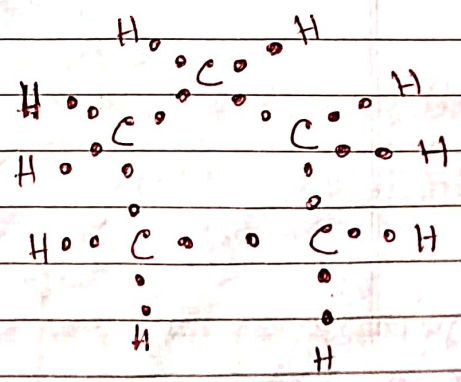 H H
C
H C C H
H H
H C C H
H H